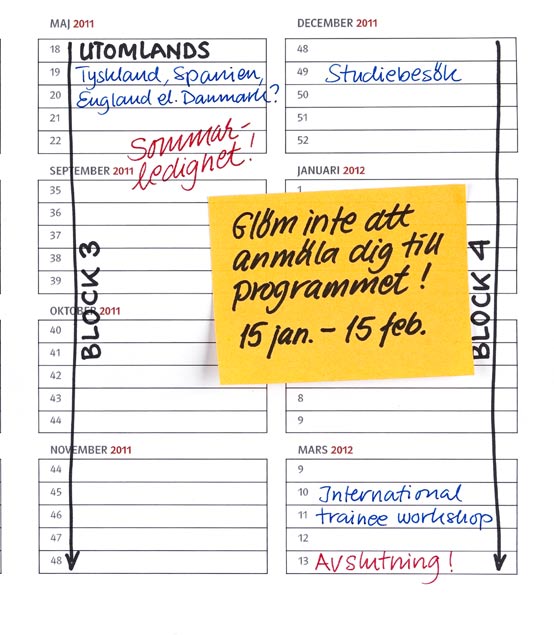 MAJ 2011
18 UTOMLANDS
19 Tyskland, Spanien,
20 England el. Danmark?
21
22
Sommar-
ledighet!
SEPTEMBER 2011
35
36
37
38
39
BLOCK 3
OKTOBER 2011
40
41
42
43
44
NOVEMBER 2011
44
45
46
47
48
DECEMBER 2011
48
49 Studiebesök
50
51
52
JANUARI 2012
1
Glöm inte att
anmäla dig till
programmet!
15 jan. – 15 feb.
BLOCK 4
8
9
MARS 2012
9
10 International
11 trainee workshop
12
13 Avslutning!